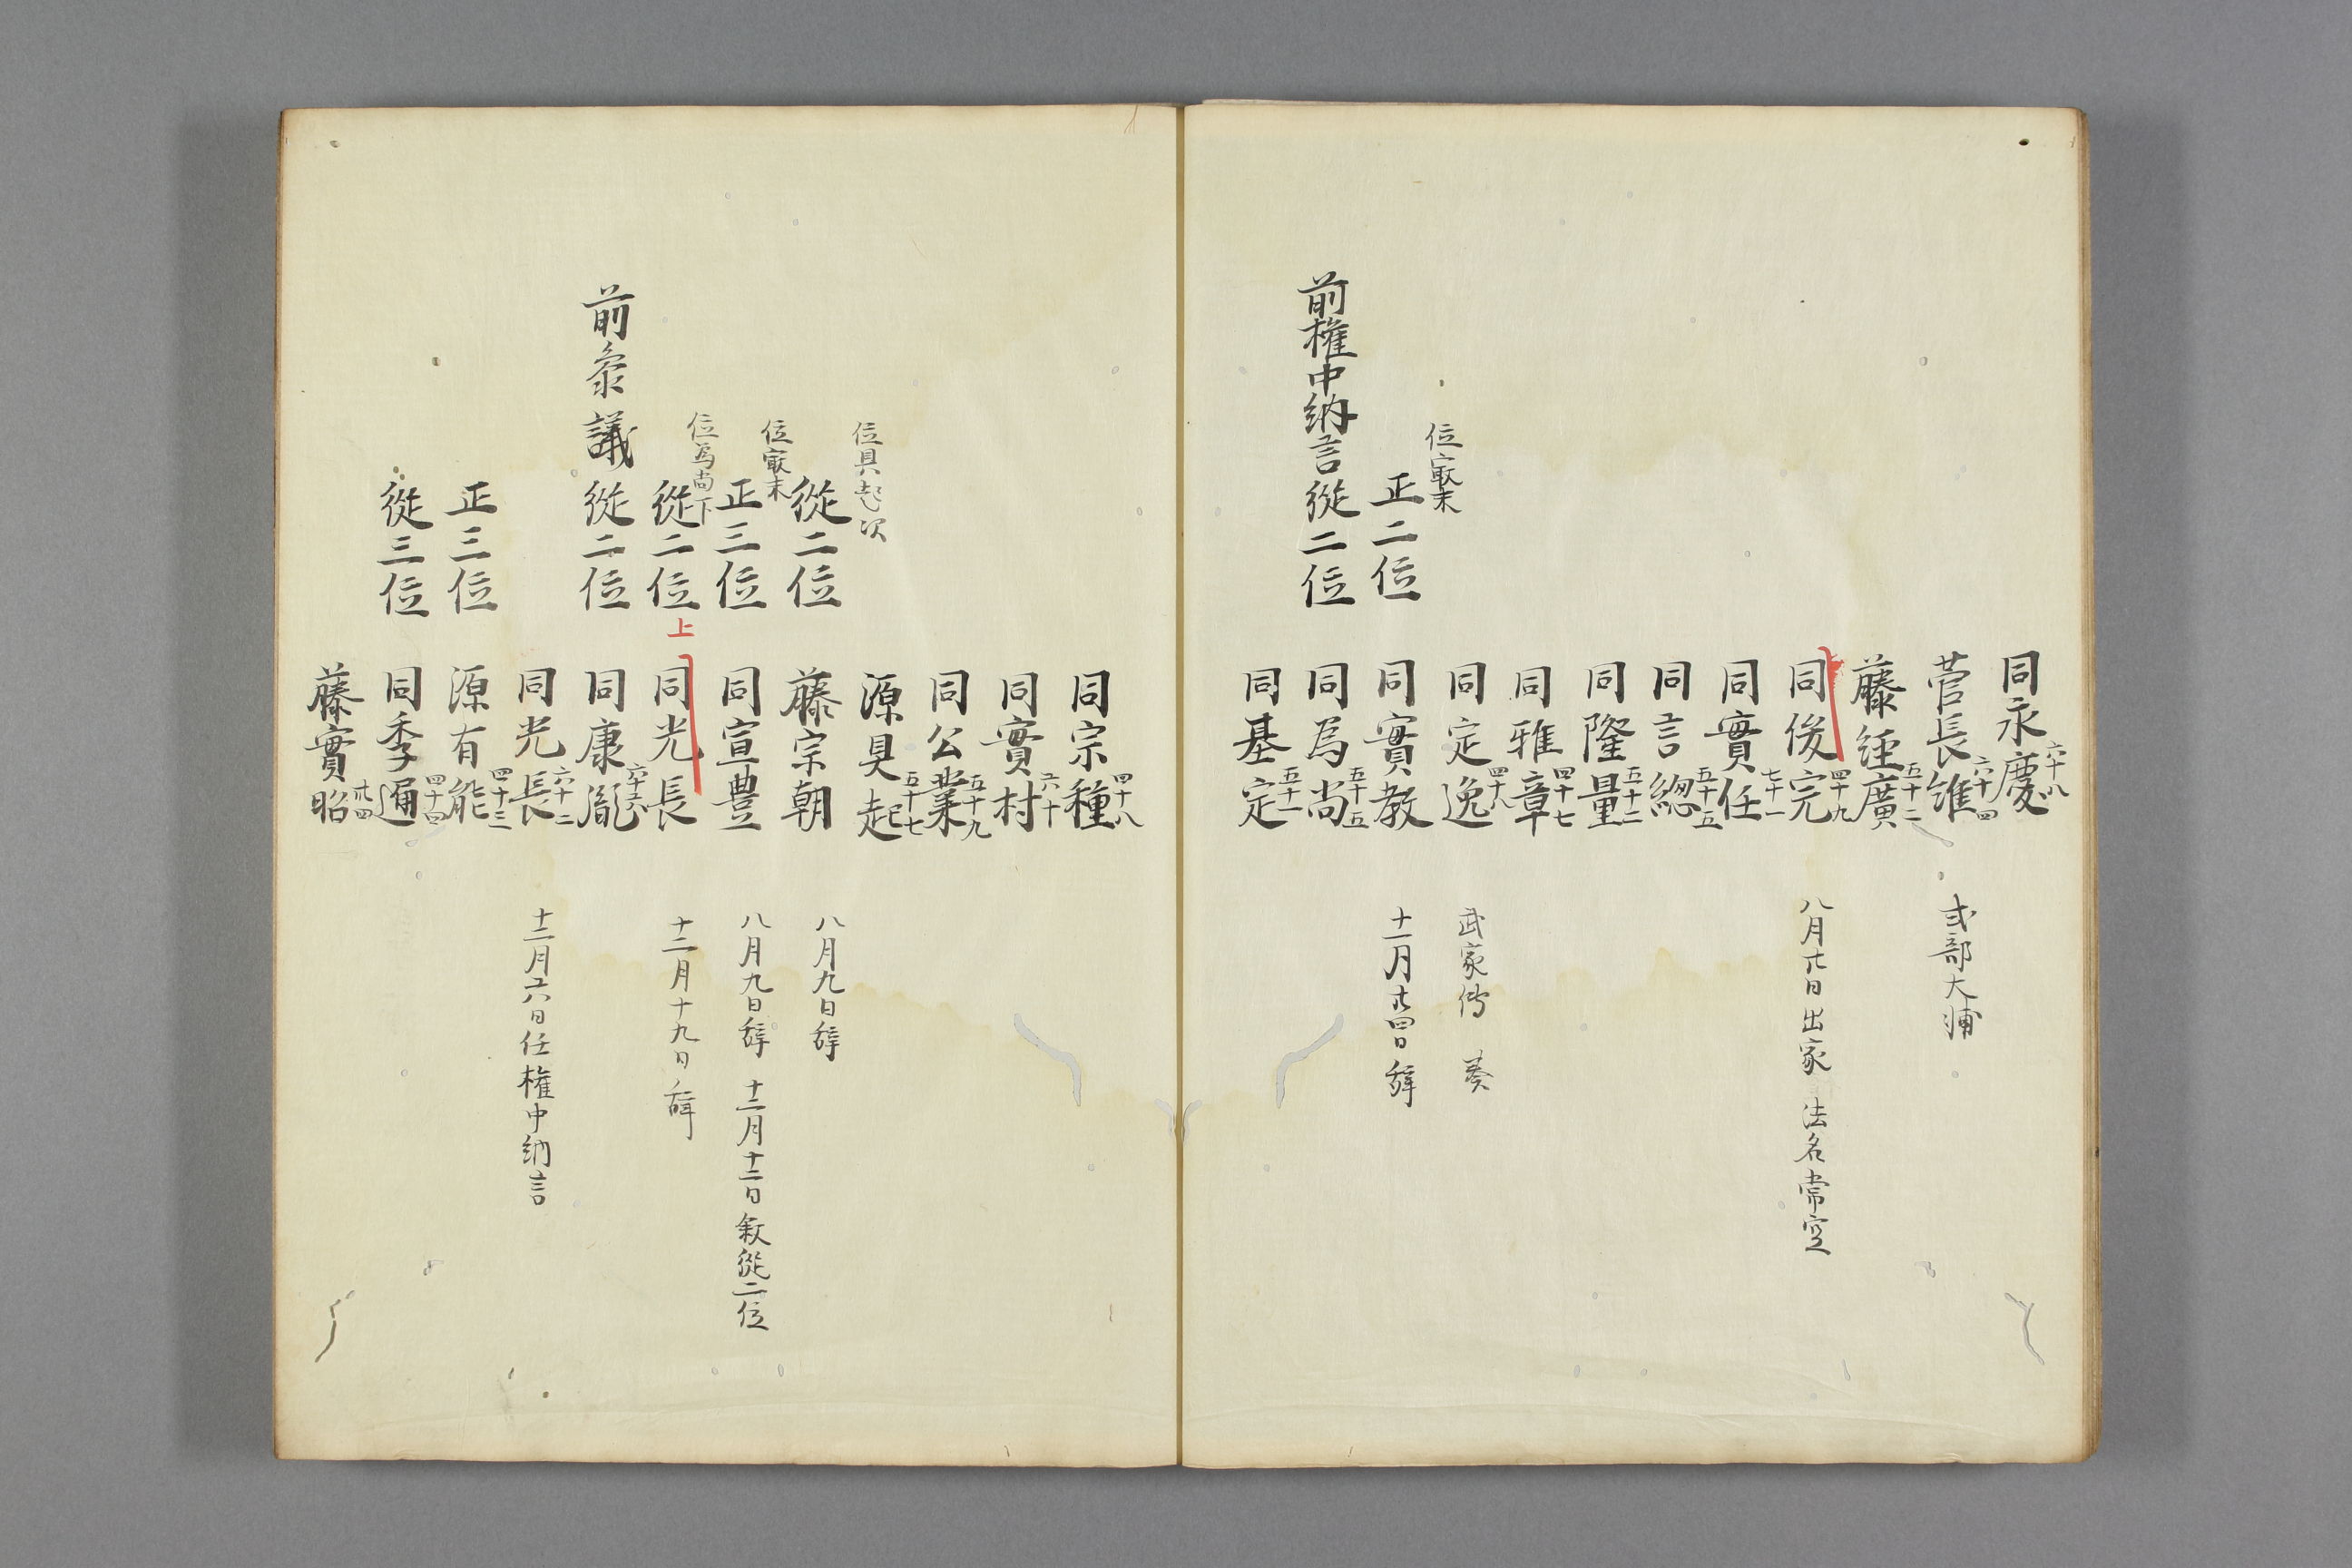 同永慶六十八
菅長維六十四 式部大輔
藤経廣五十二
同俊完四十九 八月廿日出家 法名常空
同實任七十一
同言總五十五
同隆量五十二
同雅章四十七
同定逸四十八 武家傳 奏
位㝡末 正二位 同實教 十一月廿四日辞
前權中納言從二位 同為尚五十五
同基定五十一
同宗種四十八
同實村六十
同公業五十九
源具起五十七
位具起次 從二位 藤宗朝 八月九日辞
位㝡末 正三位 同宣豊 八月九日辞 十二月十二日叙從二位
位為尚下 從二位 上 同光長 十二月十九日辞
前参議 從二位 同康胤
同光長六十二 十二月六日任權中納言
正三位 源有能四十三
從三位 同季通四十四
藤實昭廿四